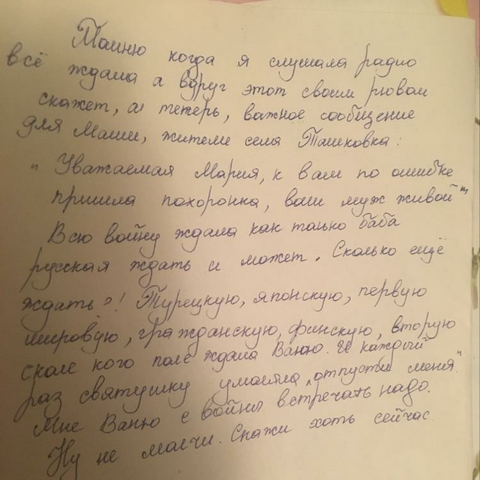 Помню когда я слушала радио
всё ждала а вдруг этот своим рёвом
скажет, а теперь, важное сообщение
для Маши, жителе села Ташковка:
"Уважаемая Мария, к вам по ошибке
пришла похоронка, ваш муж живой",
Всю войну ждала как только баба
русская ждать и может. Сколько ещё
ждать?! Турецкую, японскую, первую
мировую, гражданскую, финскую, вторую
после ждала Ваню. И каждый
раз святушку умоляла "отпусти меня"
Мне Ваню с войны встречать надо.
Ну не молчи. Скажи хоть сейчас